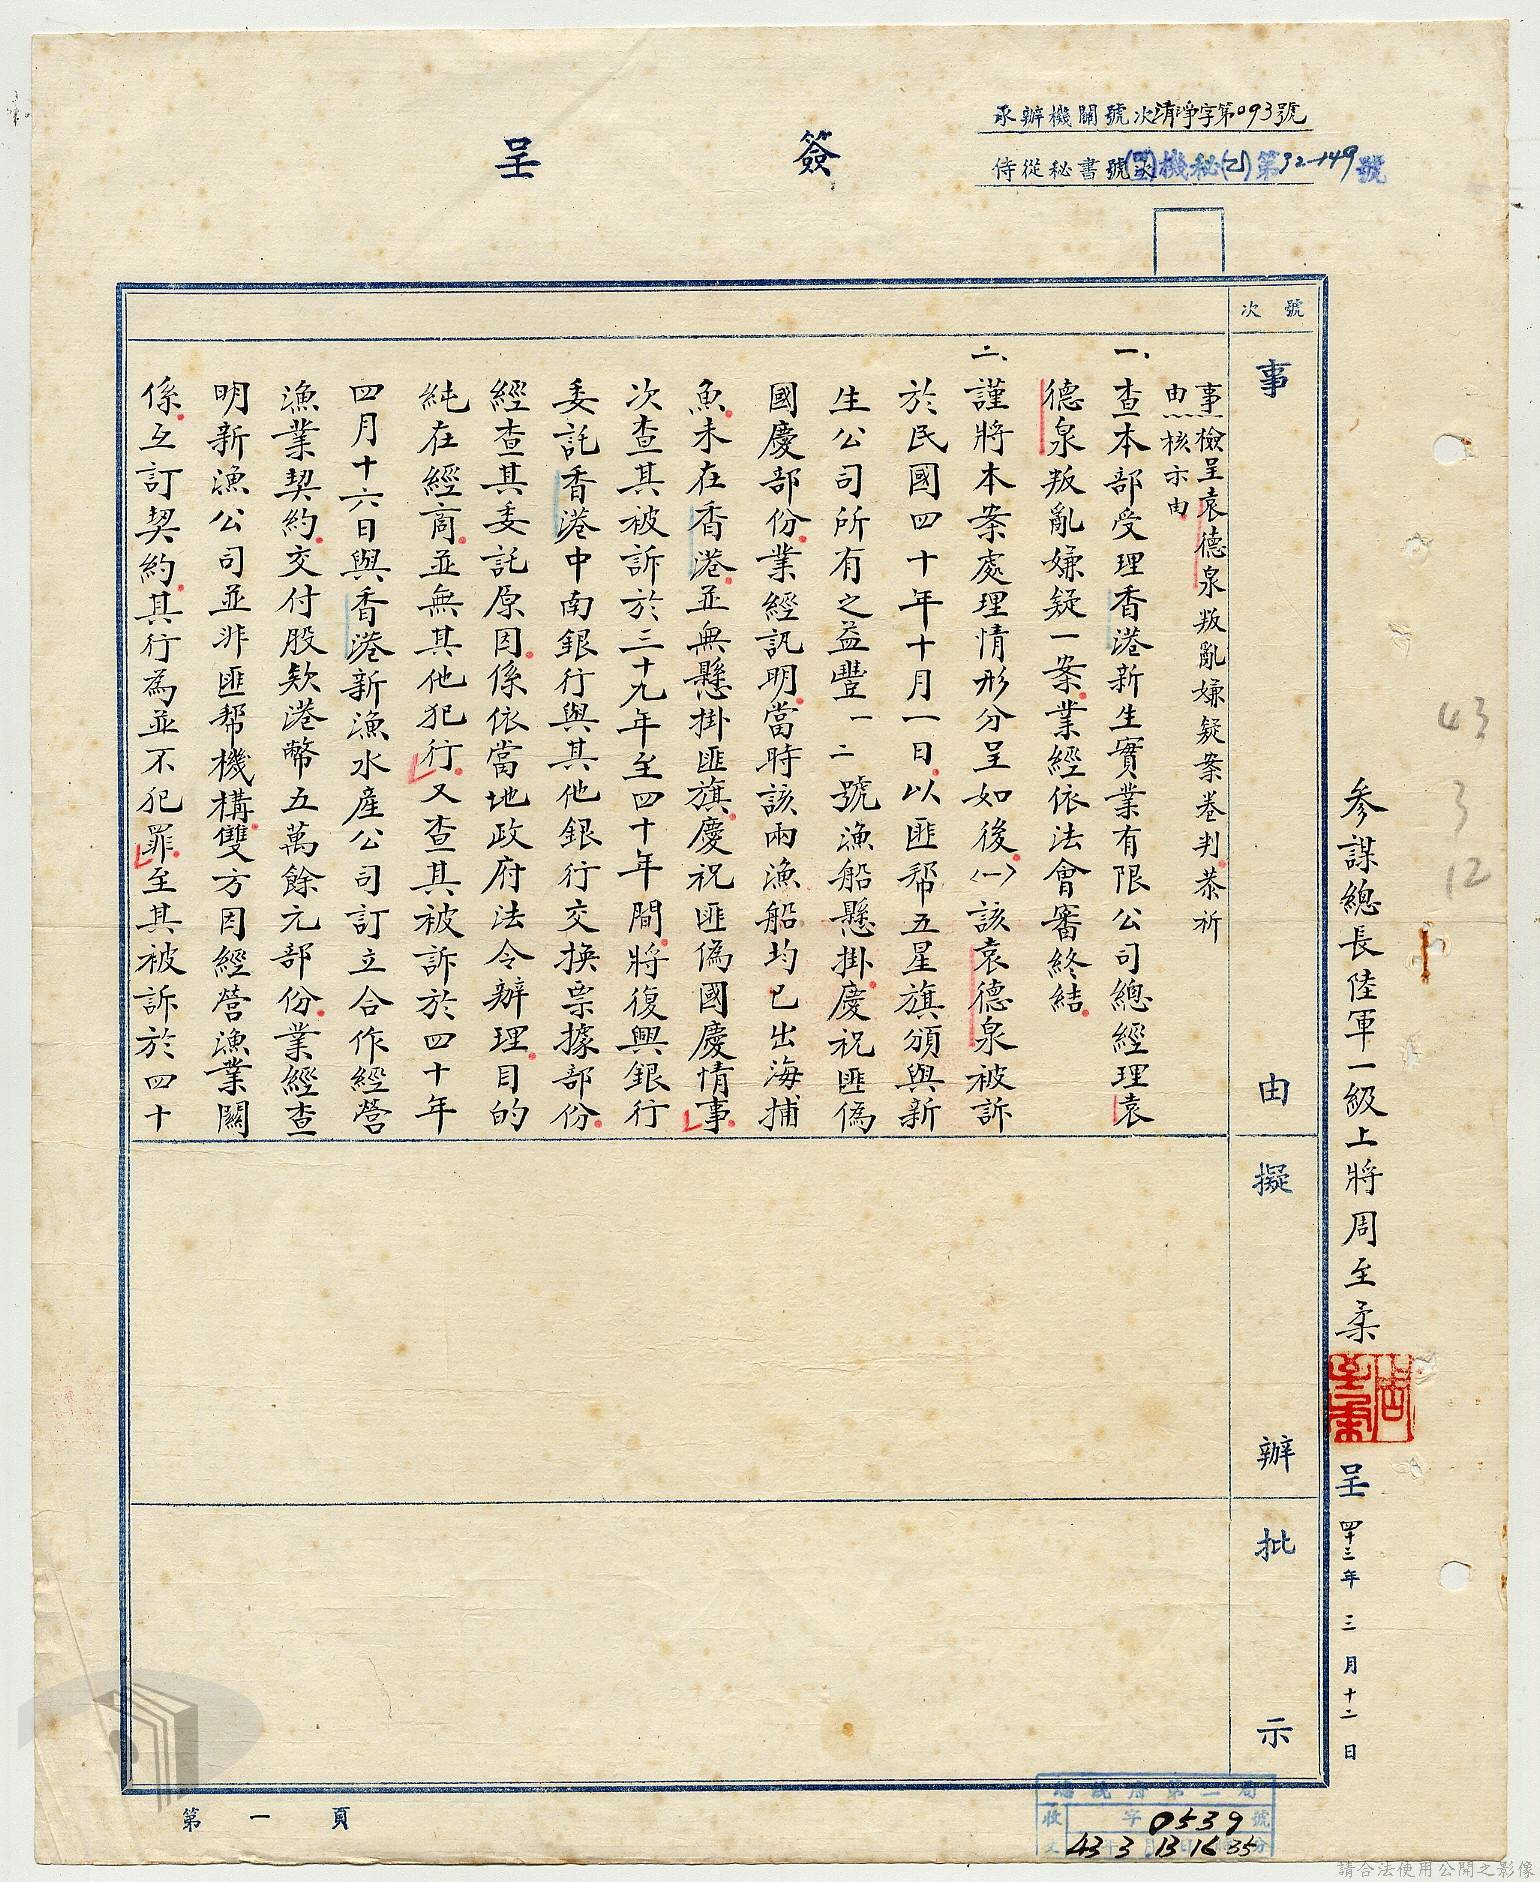 簽呈
承辦機關號次清淨字第093號
侍從秘書號次機秘(乙)第32-149號
號次
事由
擬辦
批示
參謀總長陸軍一級上將周至柔
周至柔
呈 四十三年三月十二日
43
3
12
事由:檢呈袁德泉叛亂嫌疑案卷判恭祈
核示由
一、查本部受理香港新生實業有限公司總經理袁
德泉叛亂嫌疑一案業經依法會審終結
二、謹將本案處理情形分呈如後(一)該袁德泉被訴
於民國四十年十月一日以匪帮五星旗頒與新
生公司所有之益豐一二號漁船懸掛慶祝匪偽
國慶部份業經訊明當時該兩漁船均已出海捕
魚未在香港並無懸掛匪旗慶祝匪偽國慶情事
次查其被訴於三十九年至四十年間將復興銀行
委託香港中南銀行與其他銀行交換票據部份
經查其委託原因係依當地政府法令辦理目的
純在經商並無其他犯行又查其被訴於四十年
四月十六日與香港新漁水產公司訂立合作經營
漁業契約交付股欵港幣五萬餘元部份業經查
明新漁公司並非匪帮機構雙方因經營漁業關
係互訂契約其行為並不犯罪至其被訴於四十
第一頁
總統府第二局
收 字 0539 號
文 43 年 3 月 13 日 16 時 35 分
請合法使用公開之影像